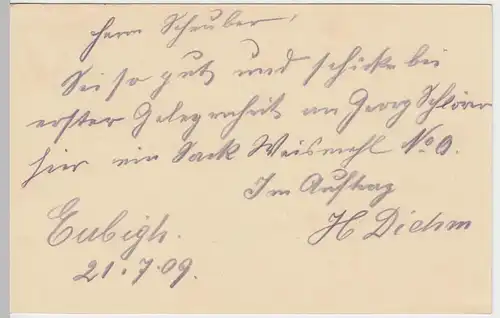 Herrn Scheuber!
Sei so gut und schicke bei
erster Gelegenheit an Georg Schlörer
hier ein Sack Weismehl No 0.
Im Auftrag
Eubigh. H Diehm
21.7.09.